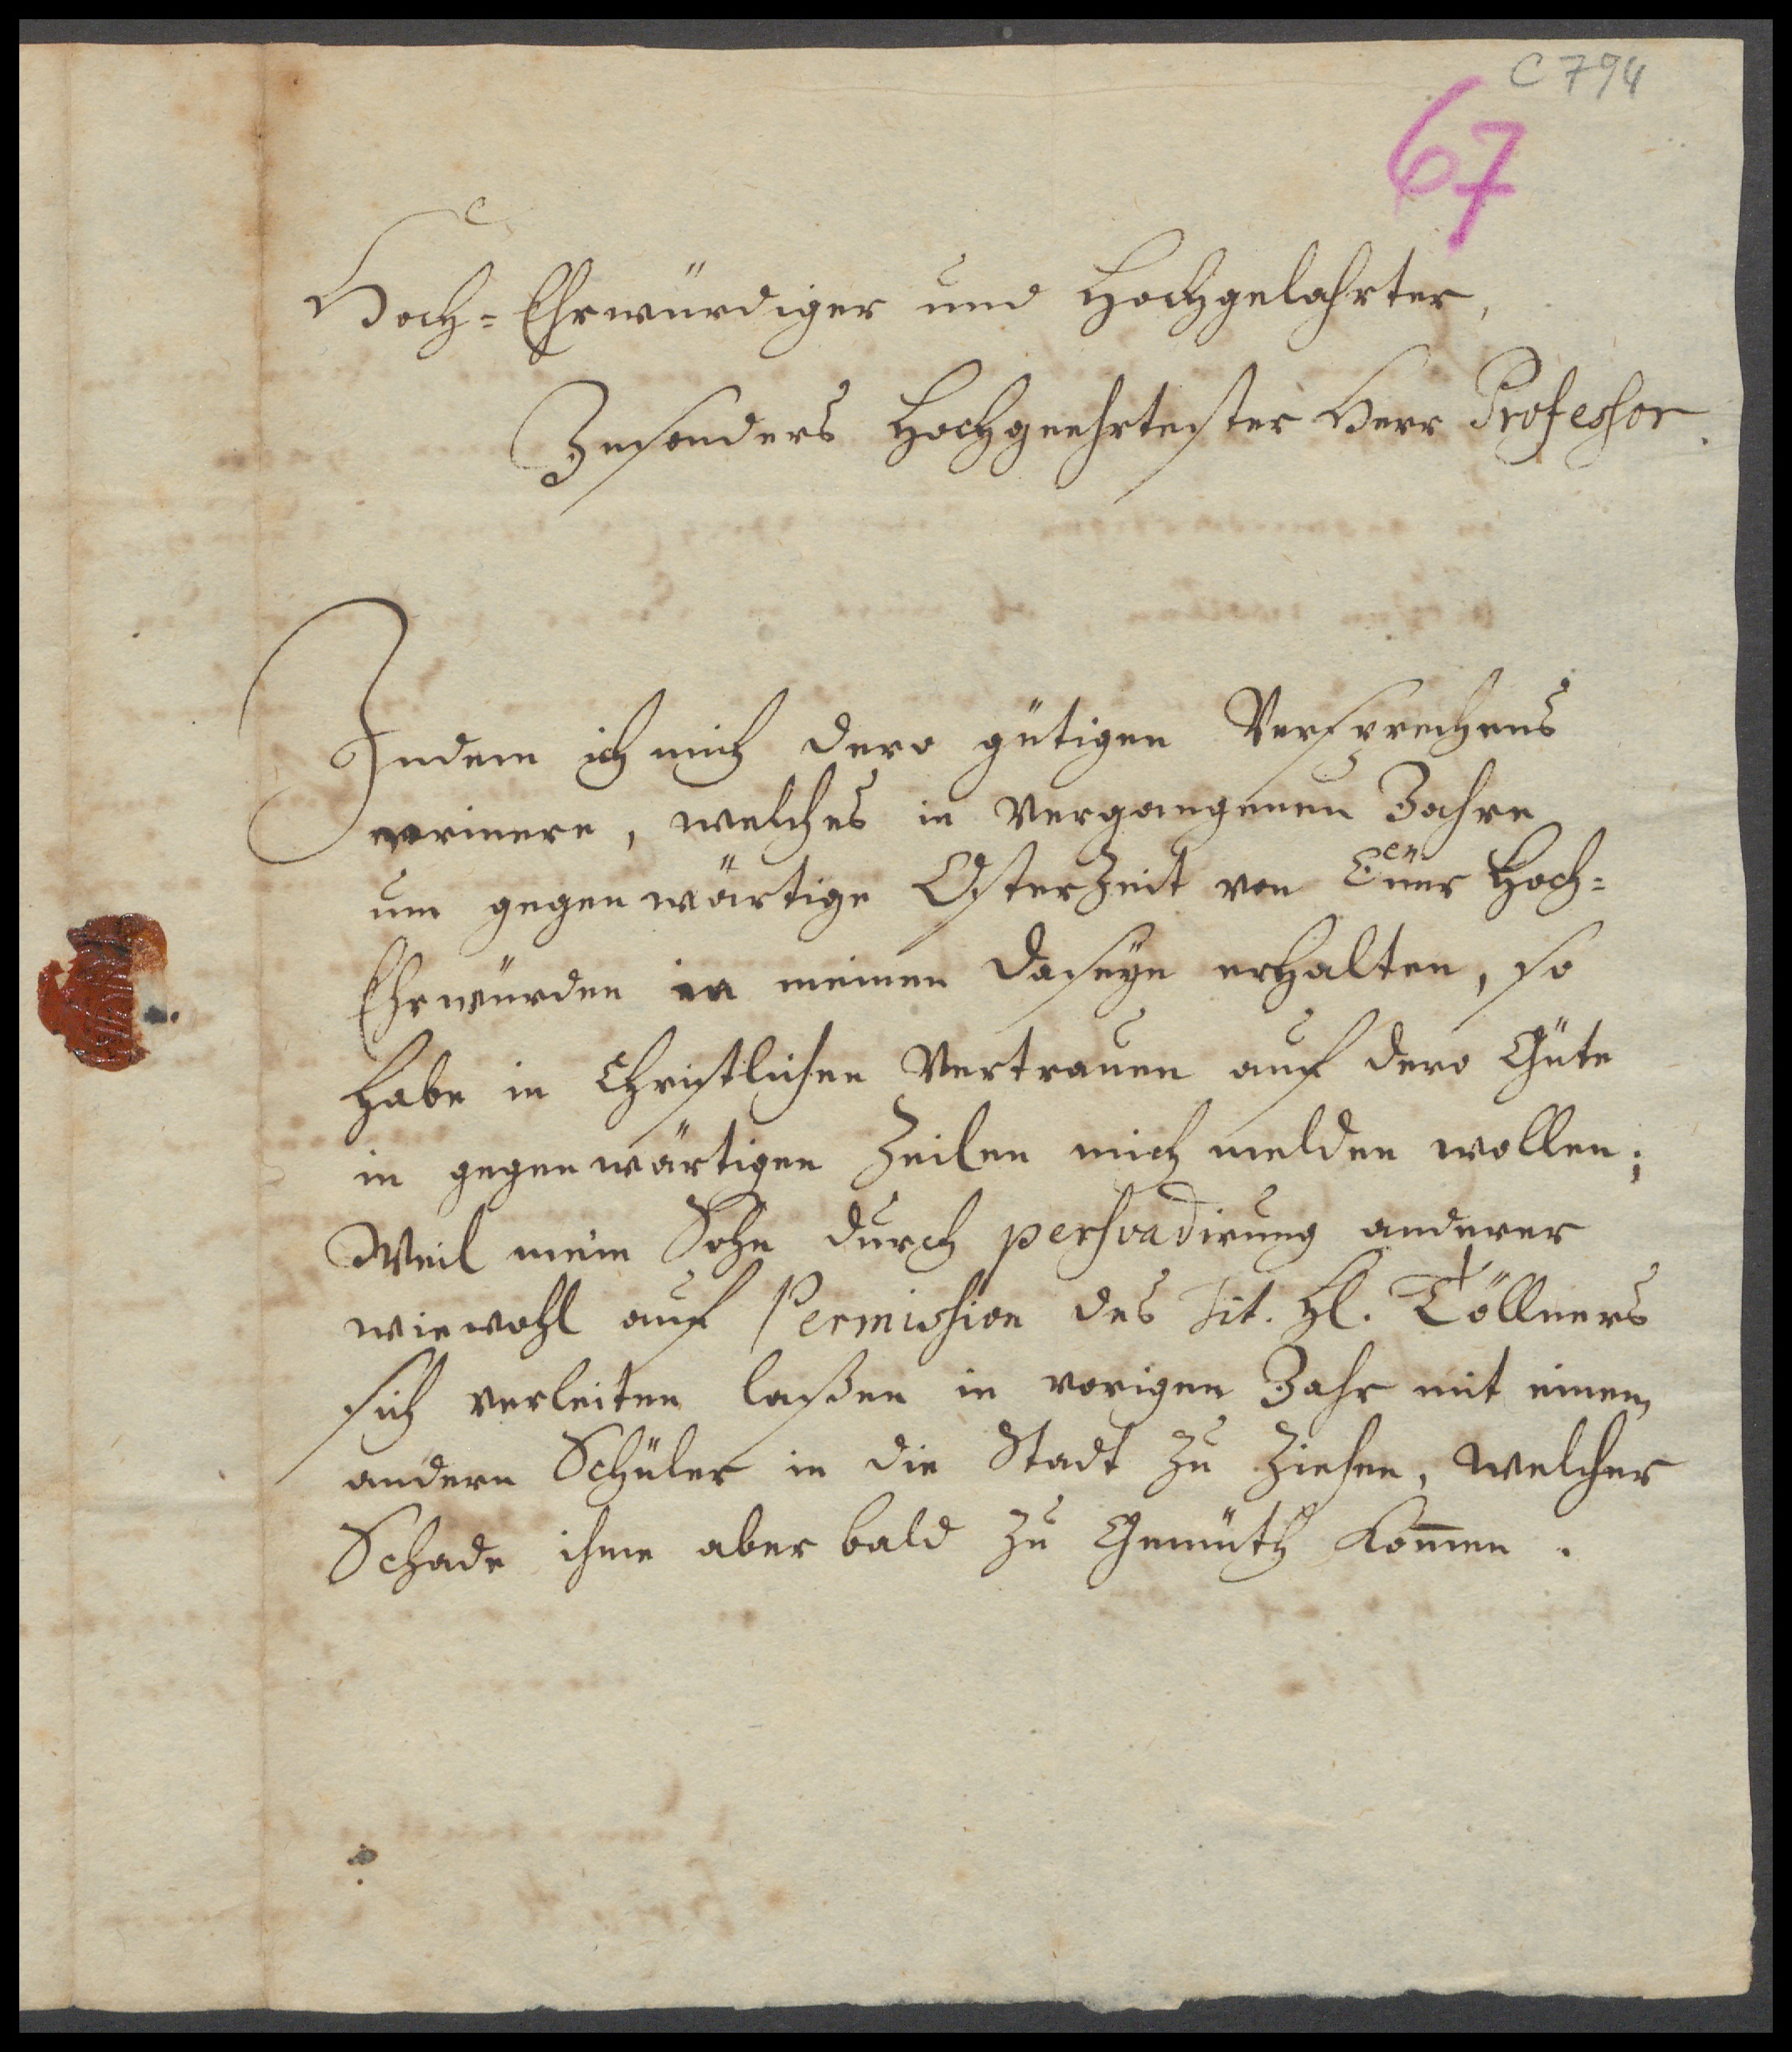 C 794
67
Hoch-Ehrwürdiger und Hochgelahrter,
Insonders Hochgeehrtester Herr Professor.
Indem ich mich dero gütigen Versprechens
erinere, welches in vergangenen Jahre
um gegenwärtige Osterzeit von Euer Hoch-
Ehrwürden in meinen daseyn erhalten, so
habe in Christlichen Vertrauen auf dero Güte
in gegenwärtigen Zeilen mich melden wollen;
Weil mein Sohn durch persvadirung anderer
wiewohl auf Permission des Tit. H. Töllners
sich verleiten laßen in vorigen Jahr mit einem
andern Schüler in die Stadt zu ziehen, welcher
Schade ihme aber bald zu Gemüth kom̄en.